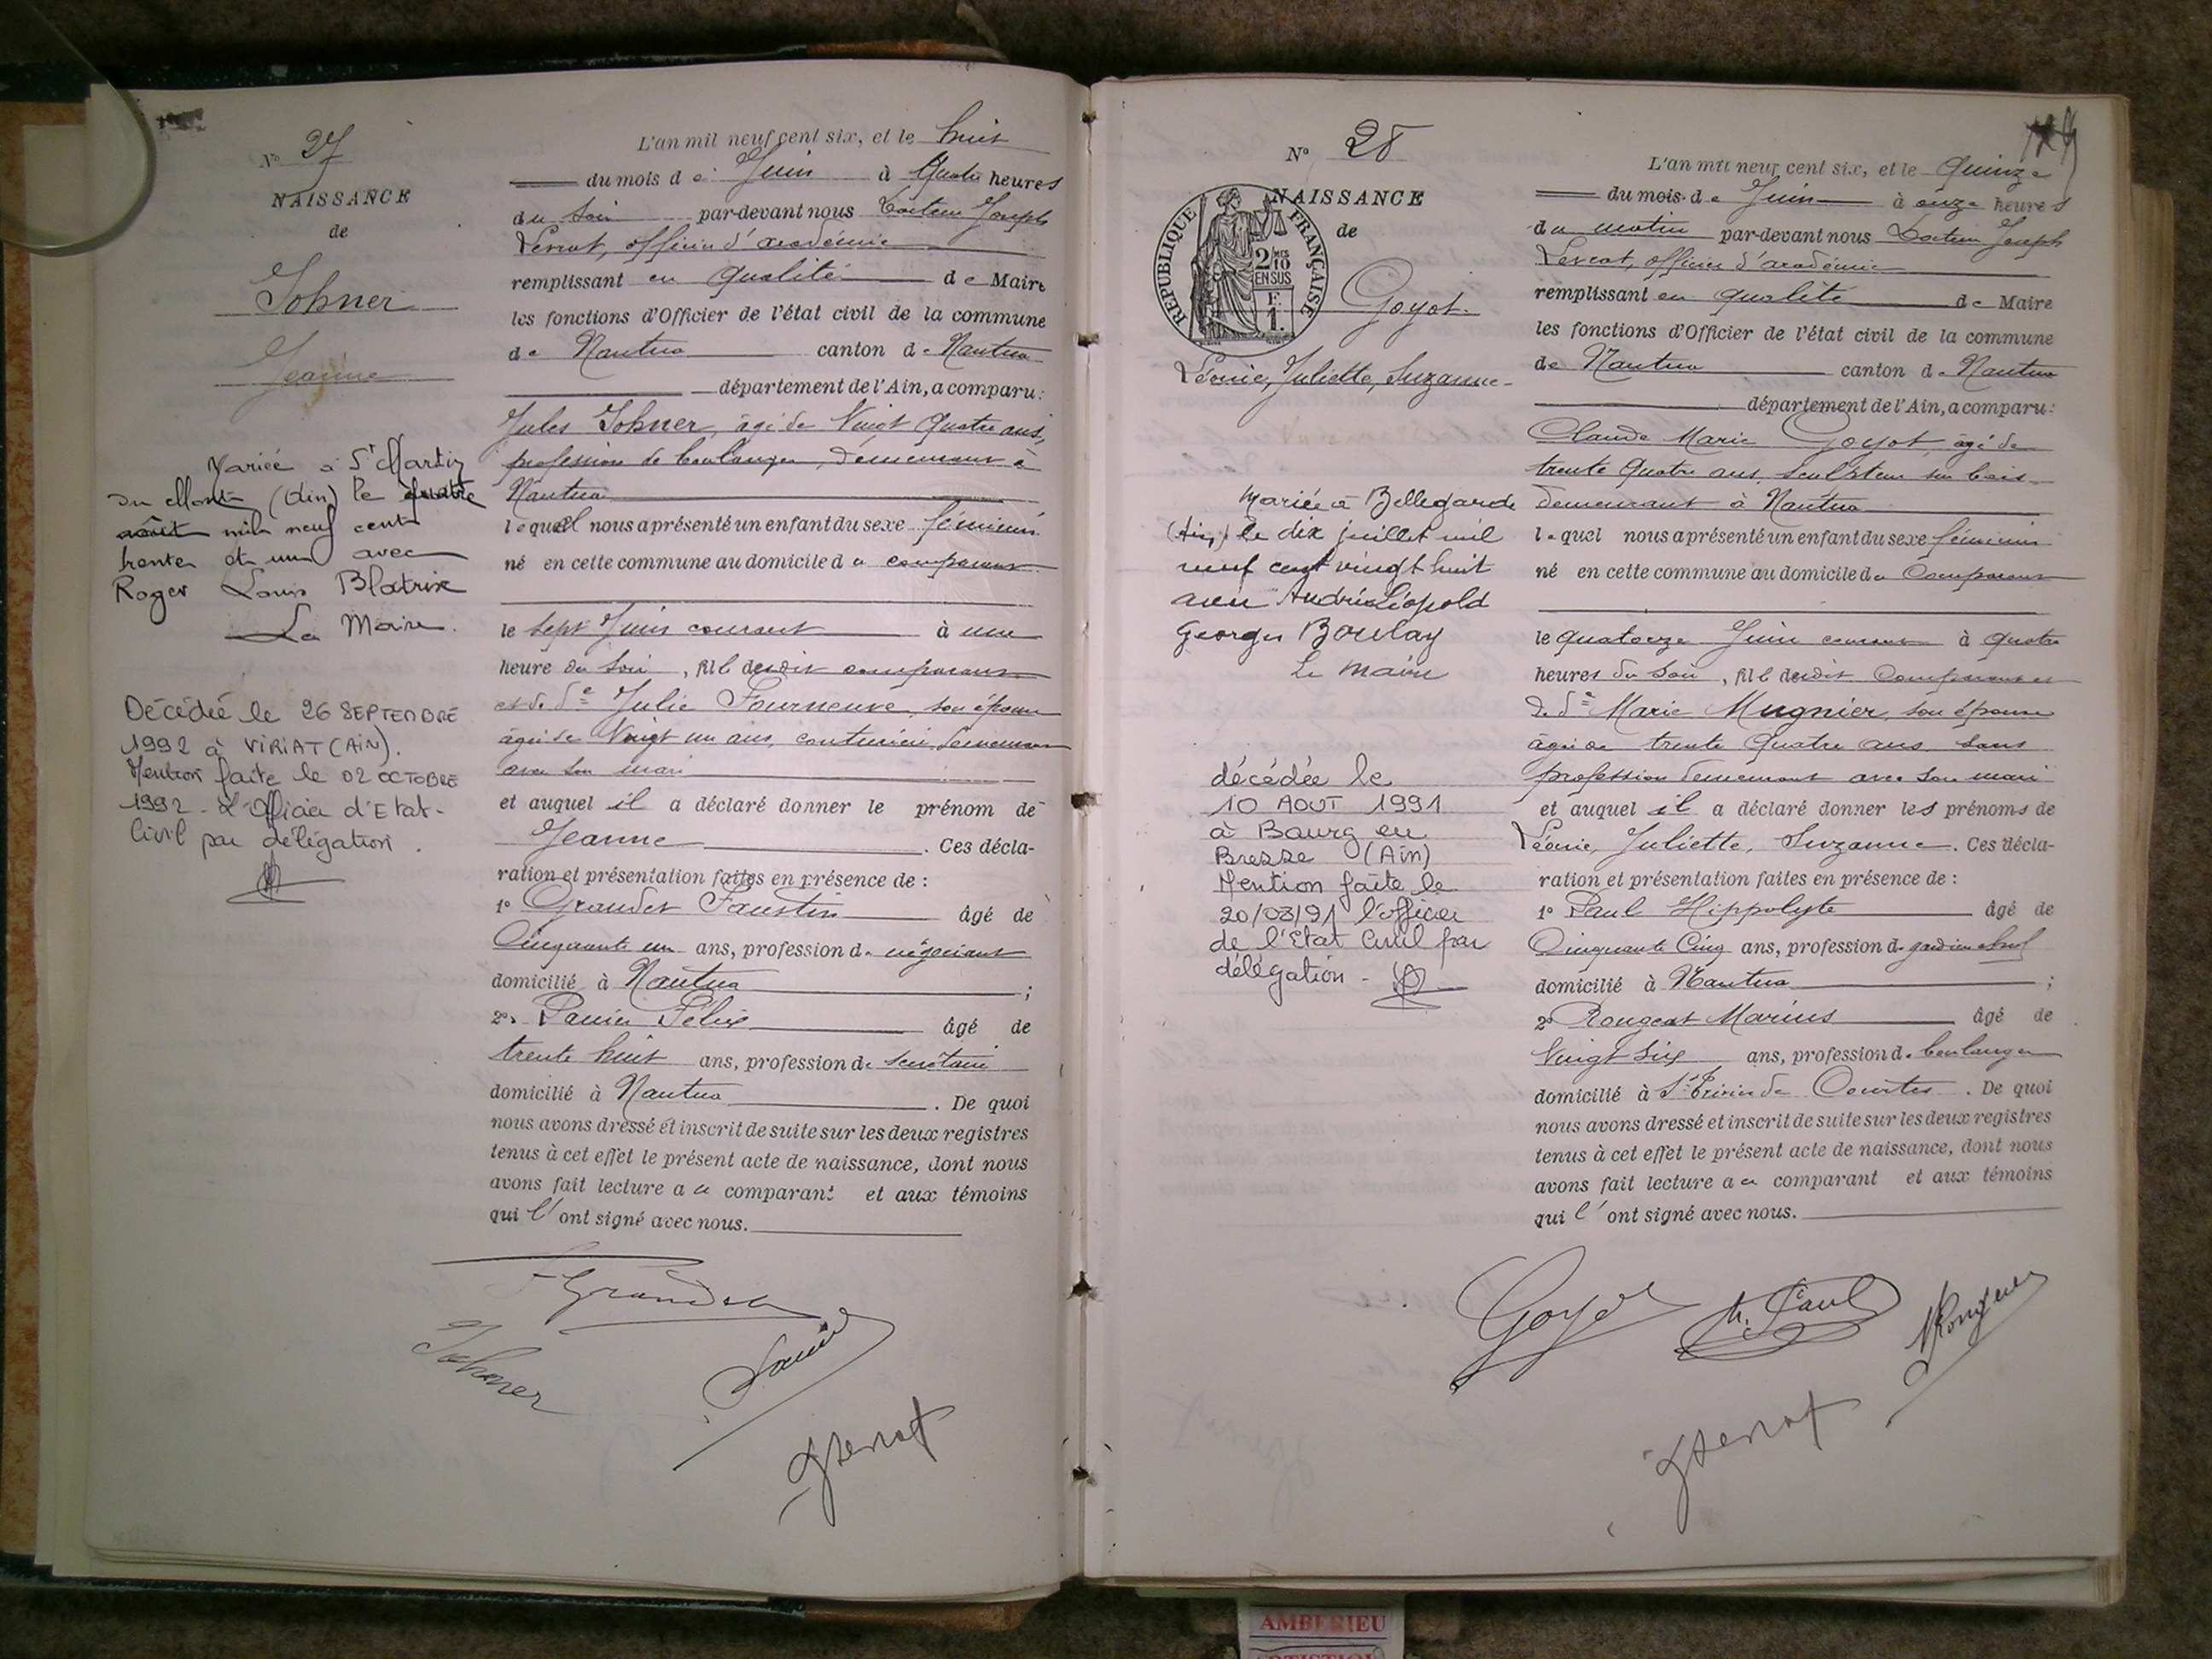 N° 27
NAISSANCE
de
Sohner
Jeanne
Mariée à St Martin
du Mont (Ain) le quatre
août mil neuf cent
trente et un avec
Roger Louis Blatrix
Le Maire.
Décédée le 26 SEPTEMBRE
1992 à VIRIAT (AIN).
Mention faite le 02 OCTOBRE
1992 - L'Officier d'Etat-
Civil par délégation.
L'an mil neuf cent six, et le huit
du mois de Juin à Quatre heures
du soir par-devant nous Docteur Joseph
Levrat, officier d'académie
remplissant en qualité de Maire
les fonctions d'Officier de l'état civil de la commune
de Nantua canton de Nantua
département de l'Ain, a comparu:
Jules Sohner, âgé de Vingt Quatre ans,
profession de boulanger, demeurant à
Nantua
lequel nous a présenté un enfant du sexe féminin
né en cette commune au domicile du comparant
le sept Juin courant à une
heure du soir, fille dudit comparant
et de De Julie Fourneuve, son épouse
âgée de Vingt un ans, couturière, demeurant
avec son mari
et auquel il a déclaré donner le prénom de
Jeanne. Ces décla-
ration et présentation faites en présence de :
1° Grandet Faustin âgé de
Cinquante un ans, profession de négociant
domicilié à Nantua ;
2° Panier Félix âgé de
trente huit ans, profession de secrétaire
domicilié à Nantua. De quoi
nous avons dressé et inscrit de suite sur les deux registres
tenus à cet effet le présent acte de naissance, dont nous
avons fait lecture au comparant et aux témoins
qui l'ont signé avec nous.
F Grandet
Sohner
Panier
J Levrat
N° 28
NAISSANCE
de
REPUBLIQUE FRANÇAISE
2/10 EN SUS
F. 1.
Goyot.
Léonie, Juliette, Suzanne
Mariée à Bellegarde
(Ain) le dix juillet mil
neuf cent vingt huit
avec André Léopold
Georges Boulay
Le Maire
décédée le
10 AOUT 1991
à Bourg en
Bresse (Ain)
Mention faite le
20/08/91 l'officier
de l'Etat Civil par
délégation -
L'an mil neuf cent six, et le Quinze
du mois de Juin à onze heures
du matin par-devant nous Docteur Joseph
Levrat, officier d'académie
remplissant en qualité de Maire
les fonctions d'Officier de l'état civil de la commune
de Nantua canton de Nantua
département de l'Ain, a comparu:
Claude Marie Goyot, âgé de
trente Quatre ans, sculpteur sur bois
demeurant à Nantua
lequel nous a présenté un enfant du sexe féminin
né en cette commune au domicile du Comparant
le quatorze Juin courant à quatre
heures du soir, fille dudit Comparant et
de De Marie Mugnier, son épouse
âgée de trente Quatre ans, sans
profession demeurant avec son mari
et auquel il a déclaré donner les prénoms de
Léonie, Juliette, Suzanne. Ces décla-
ration et présentation faites en présence de :
1° Paul Hippolyte âgé de
Cinquante Cinq ans, profession de gardien chef
domicilié à Nantua ;
2° Rongeat Marius âgé de
Vingt Six ans, profession de boulanger
domicilié à St Trivier de Courtes. De quoi
nous avons dressé et inscrit de suite sur les deux registres
tenus à cet effet le présent acte de naissance, dont nous
avons fait lecture au comparant et aux témoins
qui l'ont signé avec nous.
Goyot
h. Paul
J Levrat
AMBERIEU